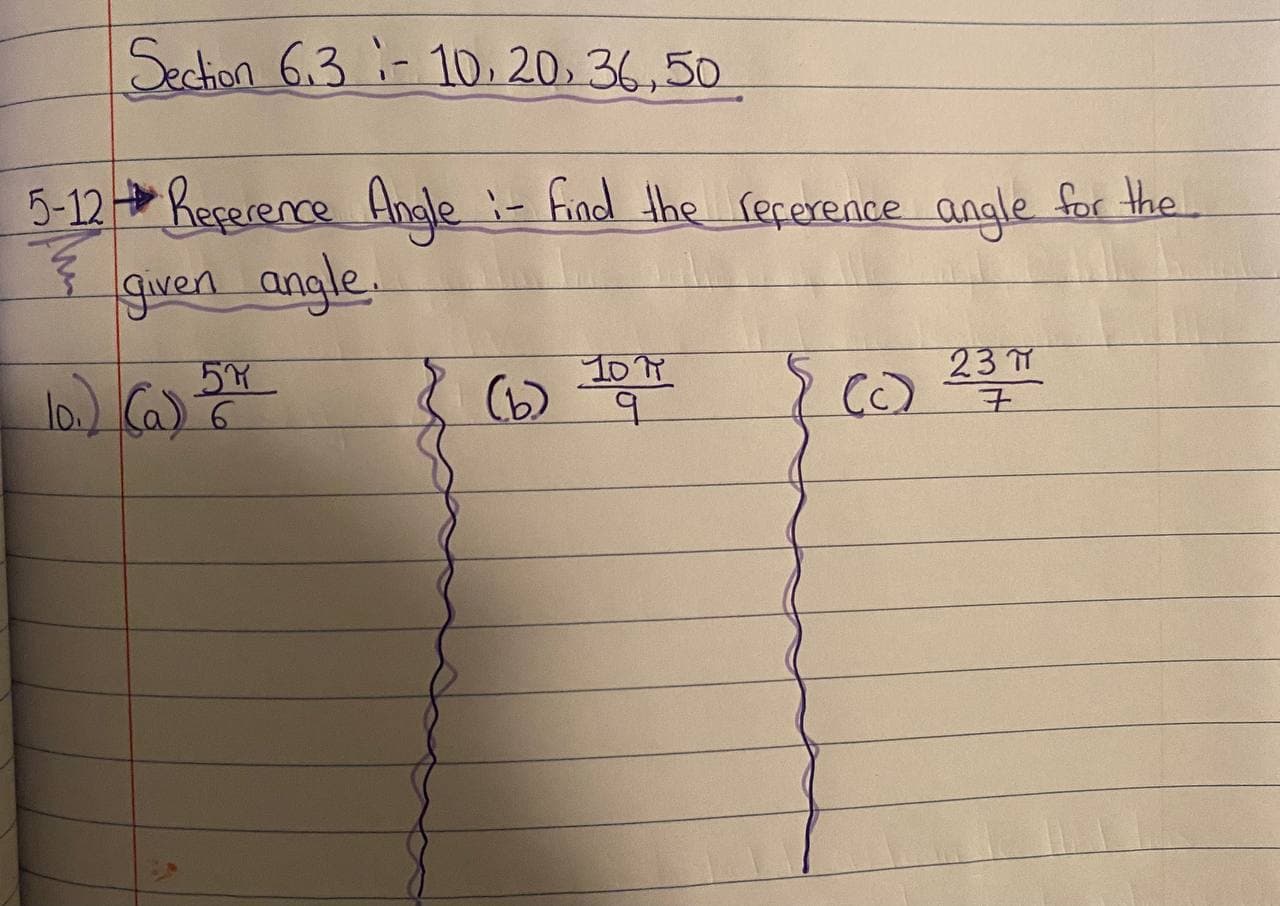 Section 6.3 :- 10, 20, 36, 50
5-12 → Reference Angle :- Find the reference angle for the
given angle.
10.) (a) 5π/6 (b) 10π/9 (c) 23π/7